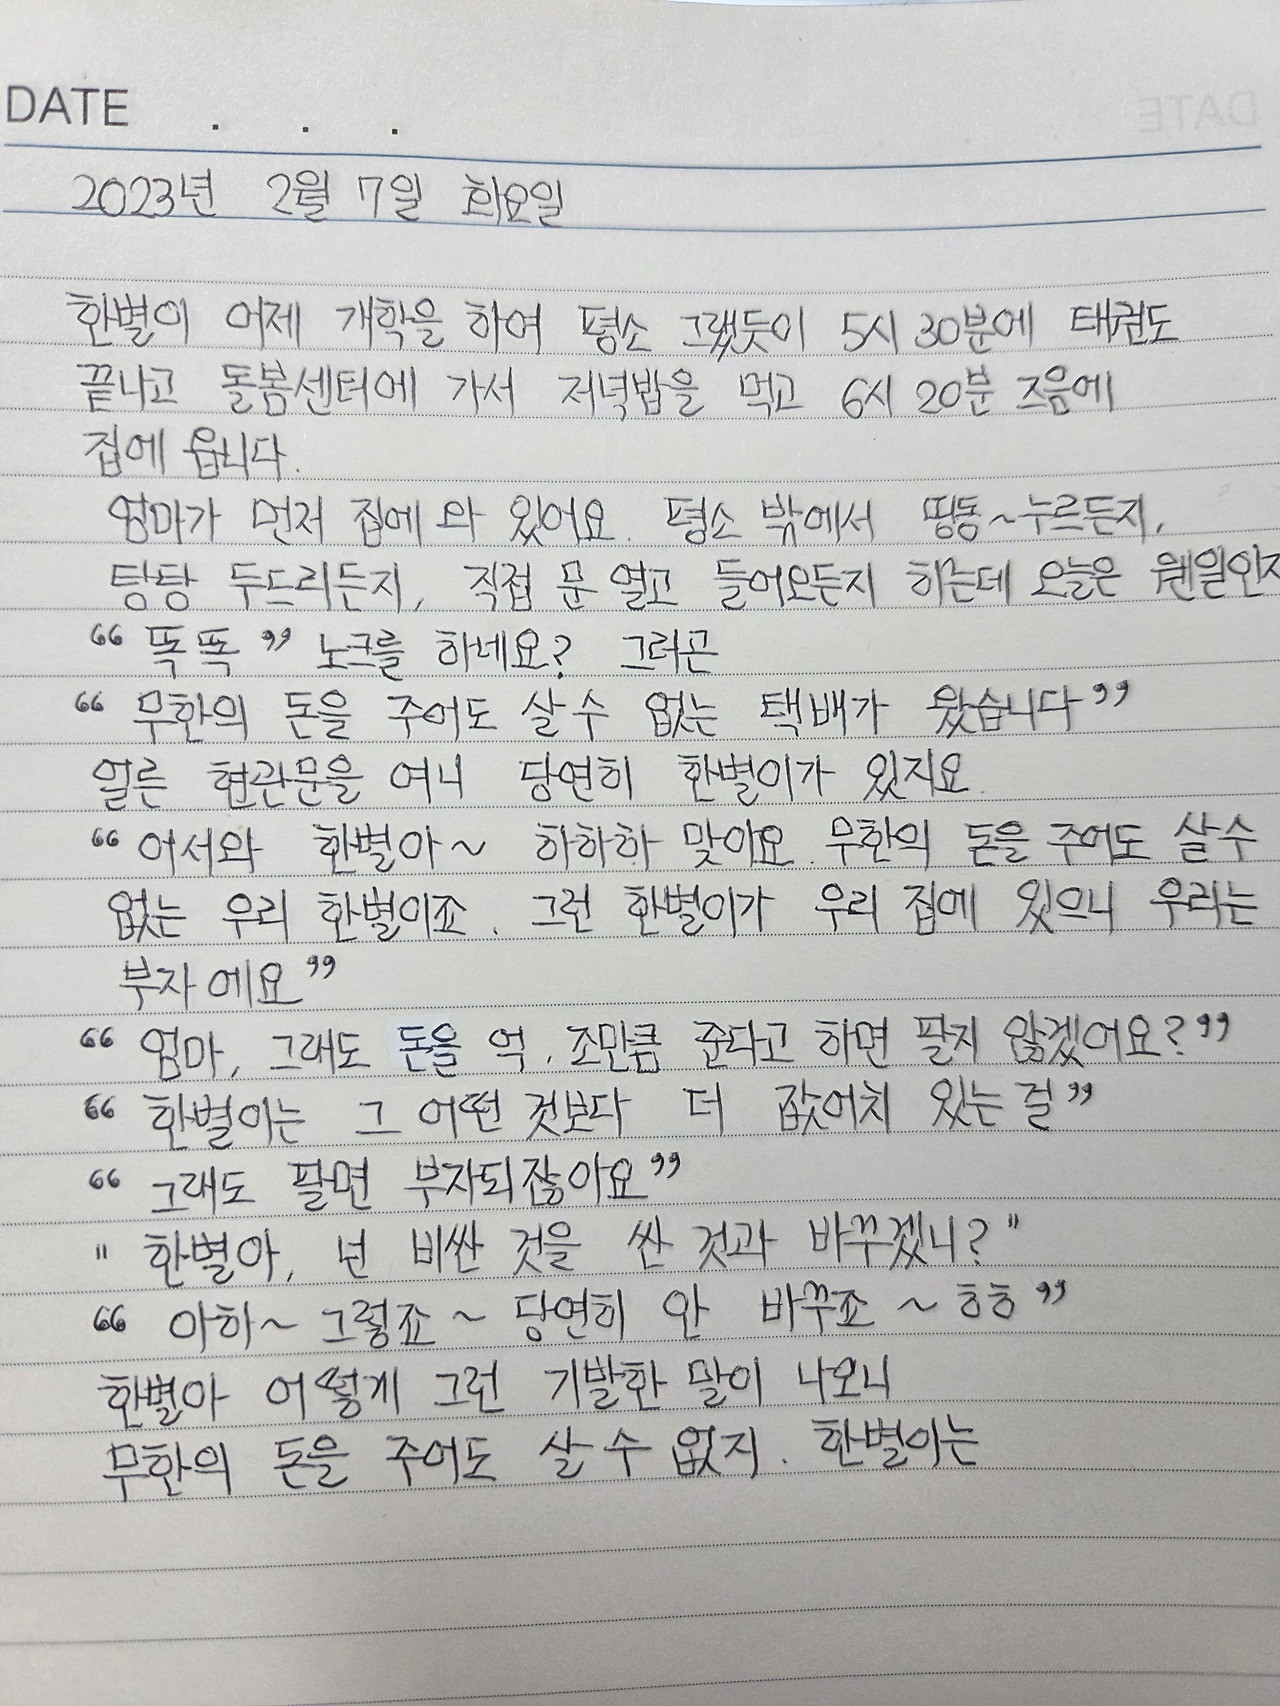 DATE . . .
2023년 2월 7일 화요일
한별이 어제 개학을 하여 평소 그랬듯이 5시 30분에 태권도
끝나고 돌봄센터에 가서 저녁밥을 먹고 6시 20분 즈음에
집에 옵니다.
엄마가 먼저 집에 와 있어요. 평소 밖에서 띵동~누르든지,
탕탕 두드리든지, 직접 문 열고 들어오든지 하는데 오늘은 웬일인지
“똑똑” 노크를 하네요? 그러곤
“무한의 돈을 주어도 살 수 없는 택배가 왔습니다”
얼른 현관문을 여니 당연히 한별이가 있지요.
“어서와 한별아~ 하하하 맞아요. 무한의 돈을 주어도 살 수
없는 우리 한별이죠. 그런 한별이가 우리 집에 있으니 우리는
부자에요”
“엄마, 그래도 돈을 억, 조만큼 준다고 하면 팔지 않겠어요?”
“한별이는 그 어떤 것보다 더 값어치 있는 걸”
“그래도 팔면 부자되잖아요”
"한별아, 넌 비싼 것을 싼 것과 바꾸겠니?"
“아하~ 그렇죠~ 당연히 안 바꾸죠~ㅎㅎ”
한별아 어떻게 그런 기발한 말이 나오니
무한의 돈을 주어도 살 수 없지. 한별이는